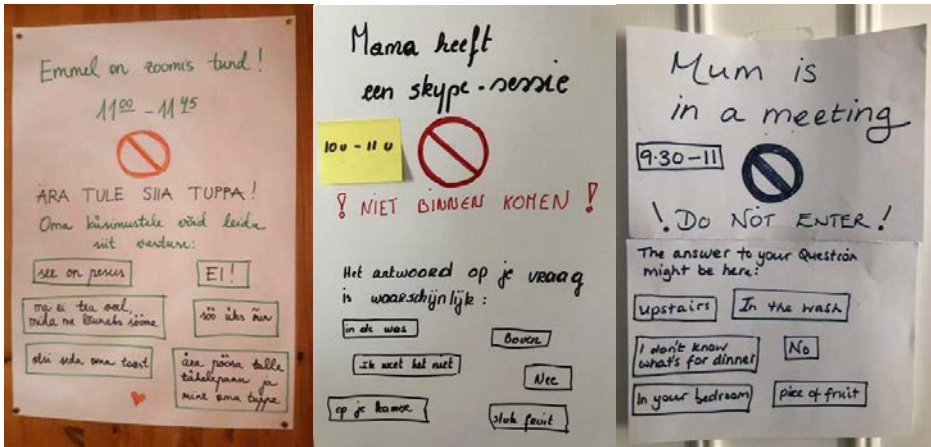 Emmel on zoomis tund!
11 00 - 11 45
ÄRA TULE SIIA TUPPA!
Oma küsimustele võid leida
siit vastuse:
see on pesus
EI!
ma ei tea veel,
mida me lõunaks sööme
söö üks õun
otsi seda oma toast
ära pööra talle
tähelepanu ja
mine oma tuppa
Mama heeft
een skype-sessie
10u - 11u
! NIET BINNEN KOMEN !
Het antwoord op je vraag
is waarschijnlijk:
in de was
Boven
Ik weet het niet
Nee
op je kamer
stuk fruit
Mum is
in a meeting
9.30-11
! DO NOT ENTER!
The answer to your Question
might be here:
upstairs
In the wash
I don't know
what's for dinner
No
In your bedroom
pice of fruit